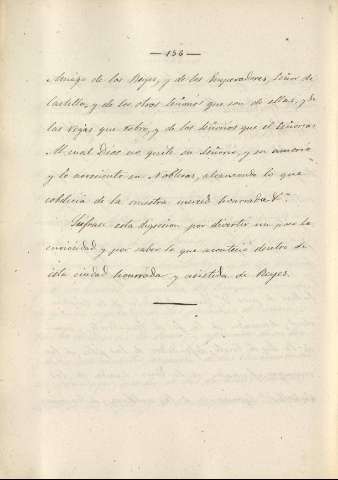 — 156 —
Amigo de los Reyes, y de los Emperadores, Señor de
Castilla, y de los otros Señoríos que son de ellas, y de
las que sobre, y de los Señoríos que el Señor
Al cual Dios no quite su Señorio, y su
y lo acresiente su Nobleras, alcansando lo que
cobdicia de la nuestra merced honrrada &.ª
Sufrase esta digrecion por divertir un poco la
curiosidad y por saber lo que acontecia dentro de
esta ciudad honrrada y asistida de Reyes.